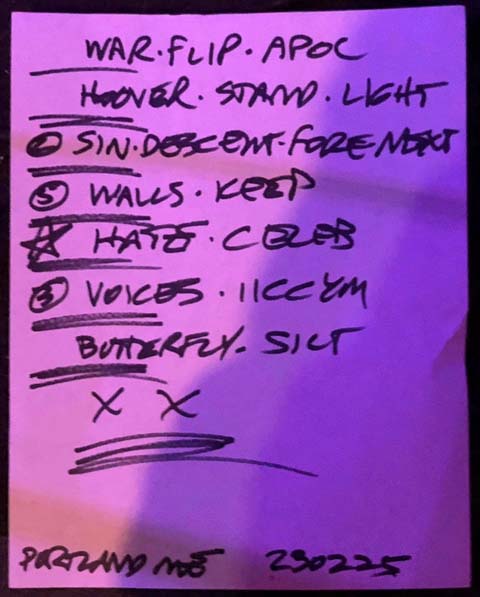 WAR·FLIP·APOC
HOOVER·STAND·LIGHT
② SIN·DESCENT·FORE·NEXT
⑤ WALLS·KEEP
☆ HATE·CELEB
③ VOICES·IICCYM
BUTTERFLY·SILT
X X
PORTLAND ME 230225